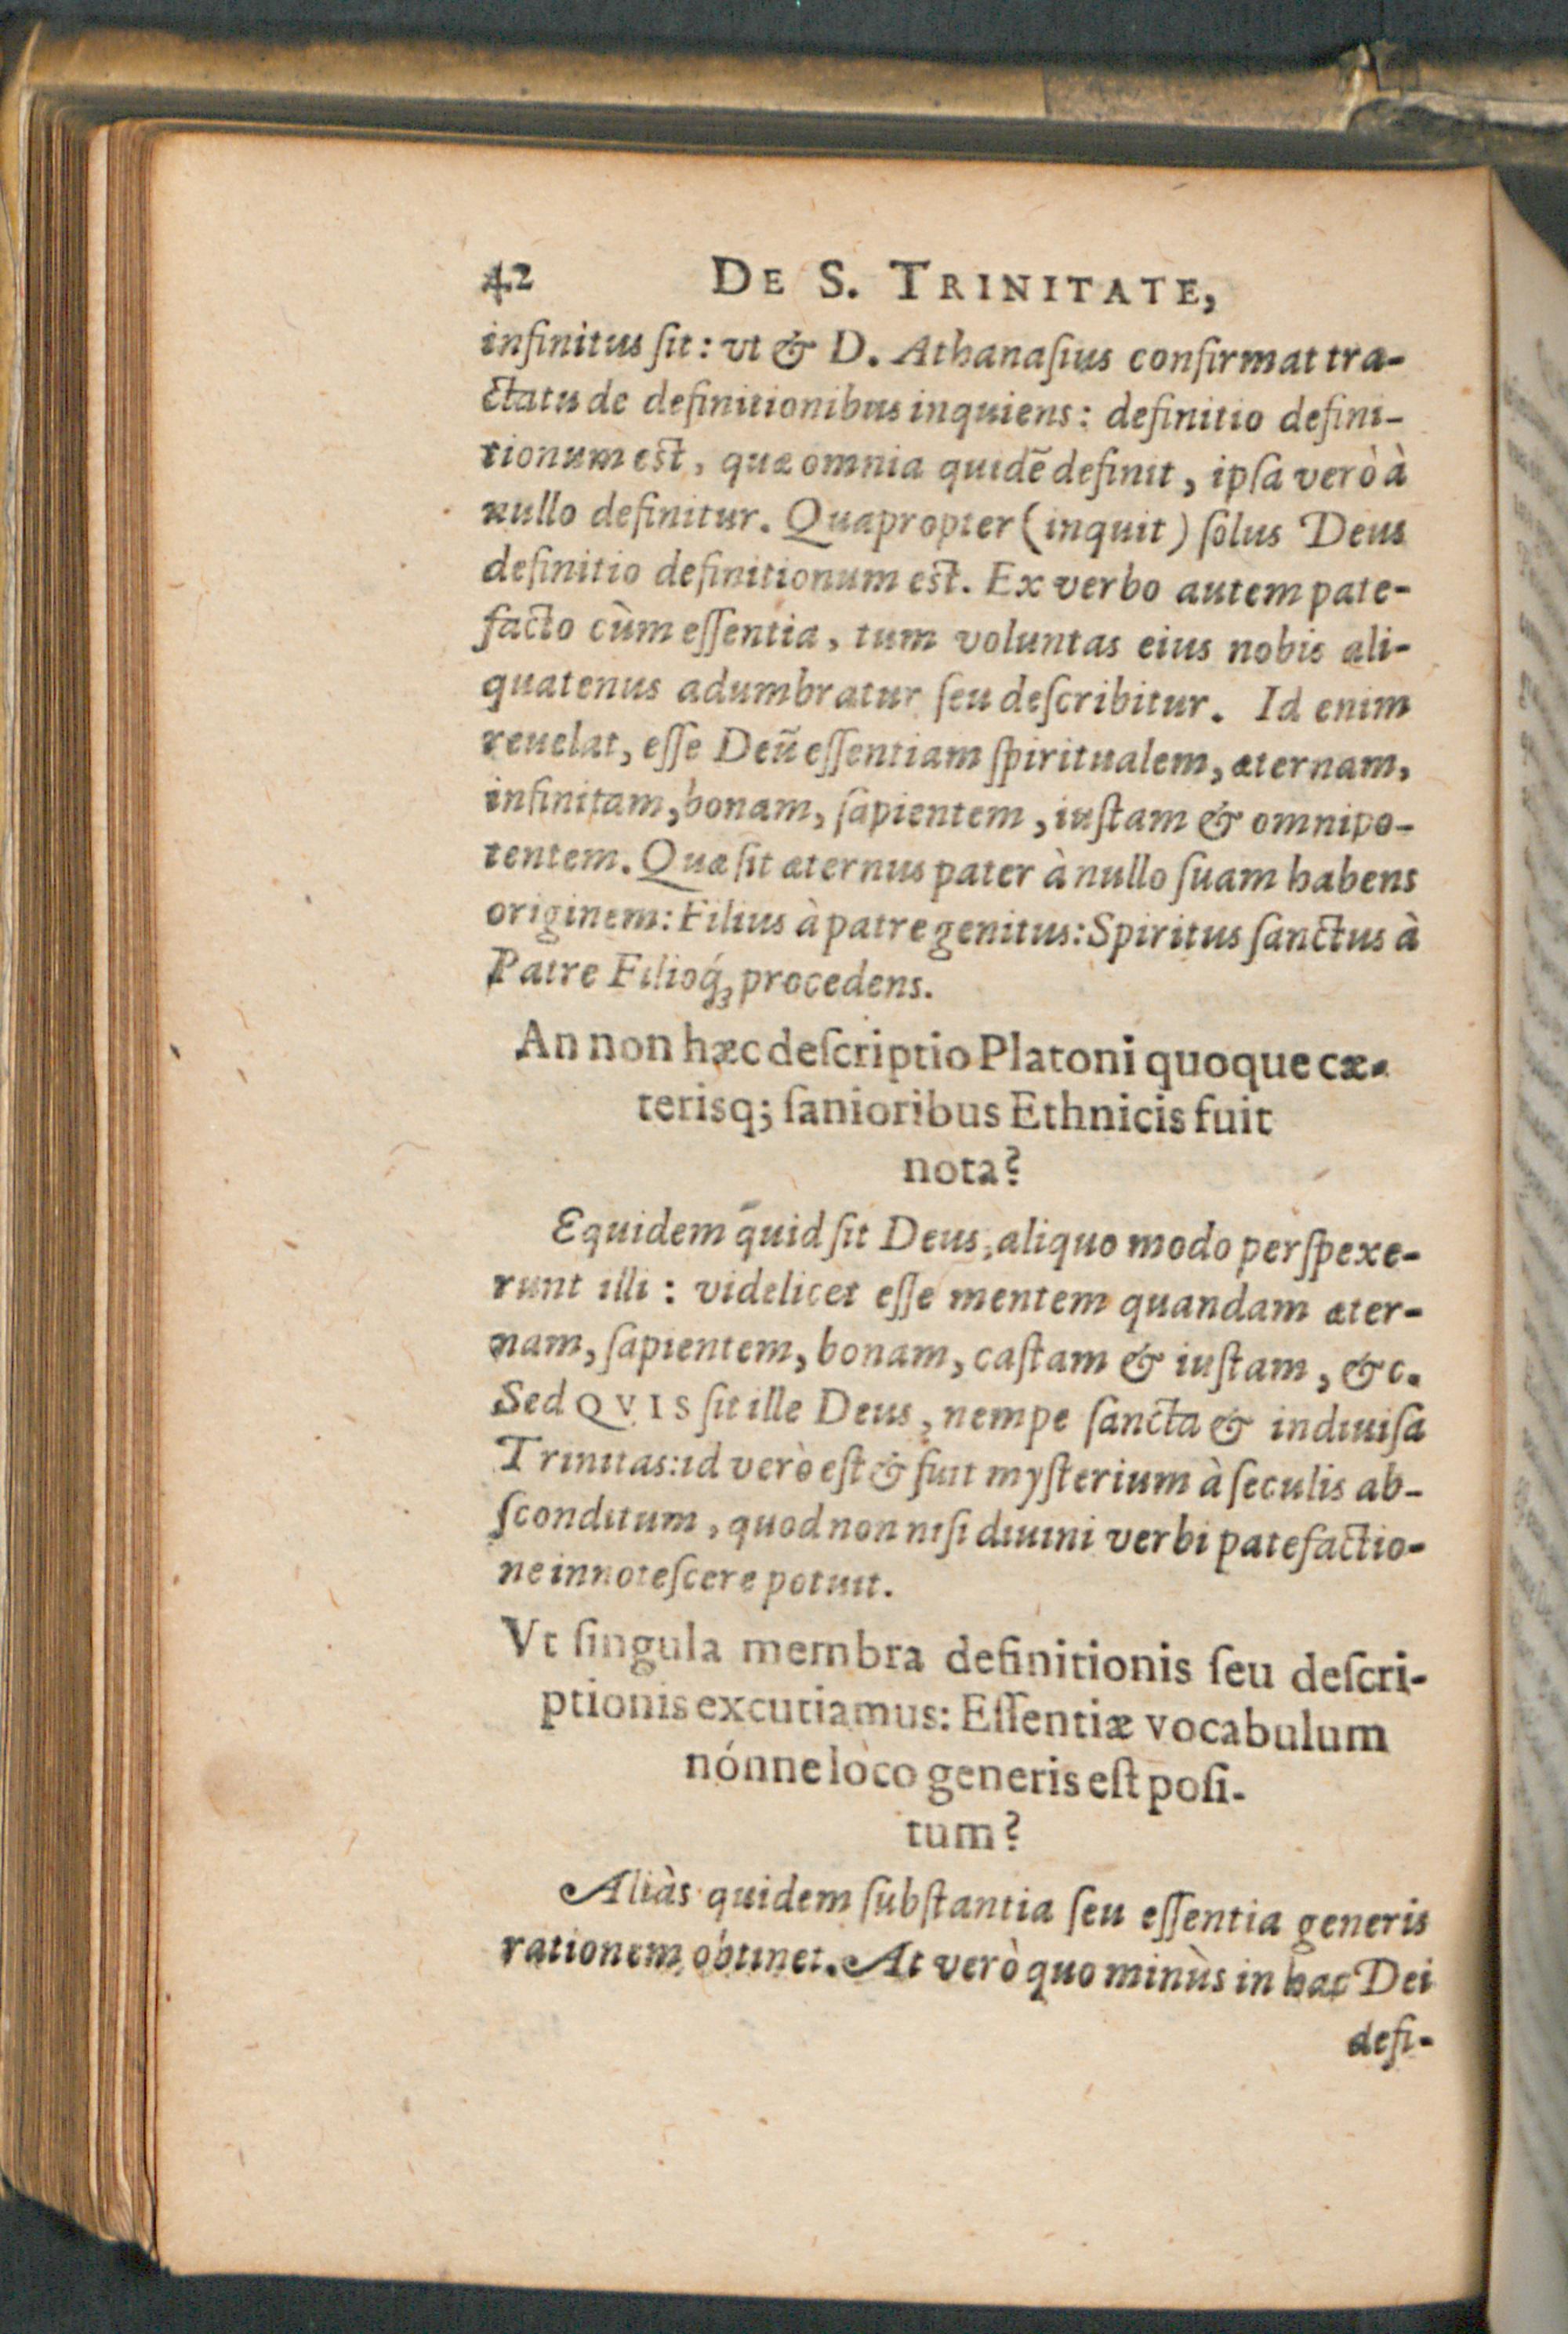 42 DE S. TRINITATE,
infinitus ſit: vt & D. Athanaſius confirmat tra-
ctatu de definitionibus inquiens: definitio defini-
tionum est, quæ omnia quidē definit, ipſa verò à
nullo definitur. Quapropter (inquit) ſolus Deus
definitio definitionum est. Ex verbo autem pate-
facto cùm eſſentia, tum voluntas eius nobis ali-
quatenus adumbratur ſeu deſcribitur. Id enim
reuelat, eſſe Deū eſſentiam ſpiritualem, æternam,
infinitam, bonam, ſapientem, iuſtam & omnipo-
tentem. Quæ ſit æternus pater à nullo ſuam habens
originem: Filius à patre genitus: Spiritus ſanctus à
Patre Filioq́ꝫ procedens.
An non hæc deſcriptio Platoni quoque cæ-
terisq; ſanioribus Ethnicis fuit
nota?
Equidem quid ſit Deus, aliquo modo perſpexe-
runt illi: videlicet eſſe mentem quandam æter-
nam, ſapientem, bonam, caſtam & iuſtam, &c.
Sed QVIS ſit ille Deus, nempe ſancta & indiuiſa
Trinitas: id verò eſt & fuit myſterium à ſeculis ab-
ſconditum, quod non niſi diuini verbi patefactio-
ne innoteſcere potuit.
Vt ſingula membra definitionis ſeu deſcri-
ptionis excutiamus: Eſſentiæ vocabulum
nónne loco generis eſt poſi-
tum?
Aliàs quidem ſubſtantia ſeu eſſentia generis
rationem obtinet. At verò quo minùs in hac Dei
defi-